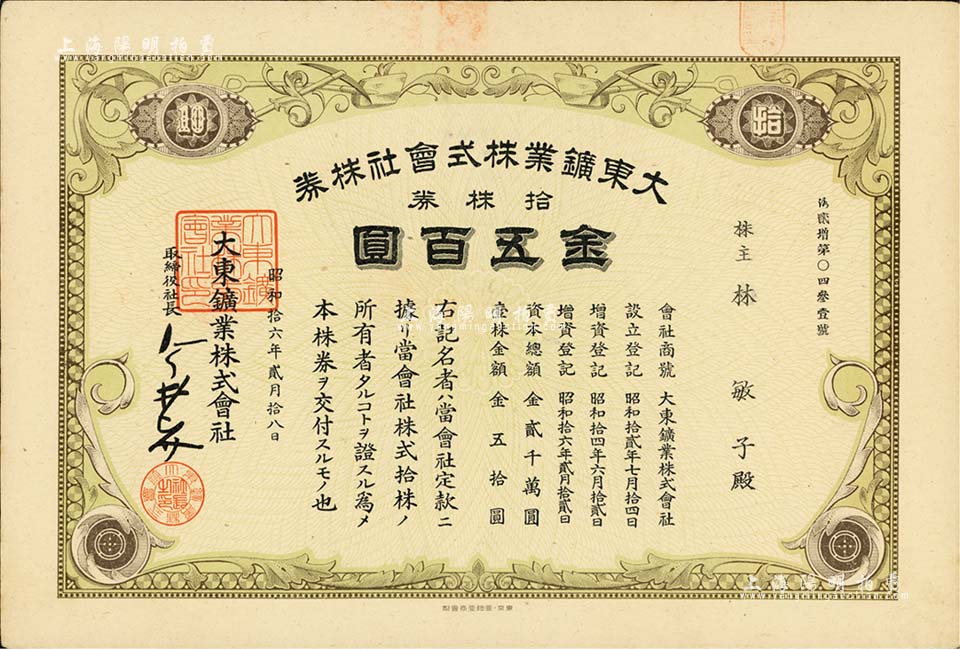 上海陽明拍賣
拾
拾
大東鑛業株式會社株券
拾株券
金五百圓
第〇四參壹號
株主 林 敏子殿
會社商號 大東鑛業株式會社
設立登記 昭和拾貳年七月拾四日
增資登記 昭和拾四年六月拾貳日
增資登記 昭和拾六年貳月拾貳日
資本總額 金貳千萬圓
壹株金額 金五拾圓
右記名者ハ當會社定款ニ
據リ當會社株式拾株ノ
所有者タルコトヲ證スル爲メ
本株券ヲ交付スルモノ也
昭和拾六年貳月拾八日
大東鑛業株式會社
取締役社長
大東鑛業株式會社印
上海陽明拍賣
上海陽明拍賣